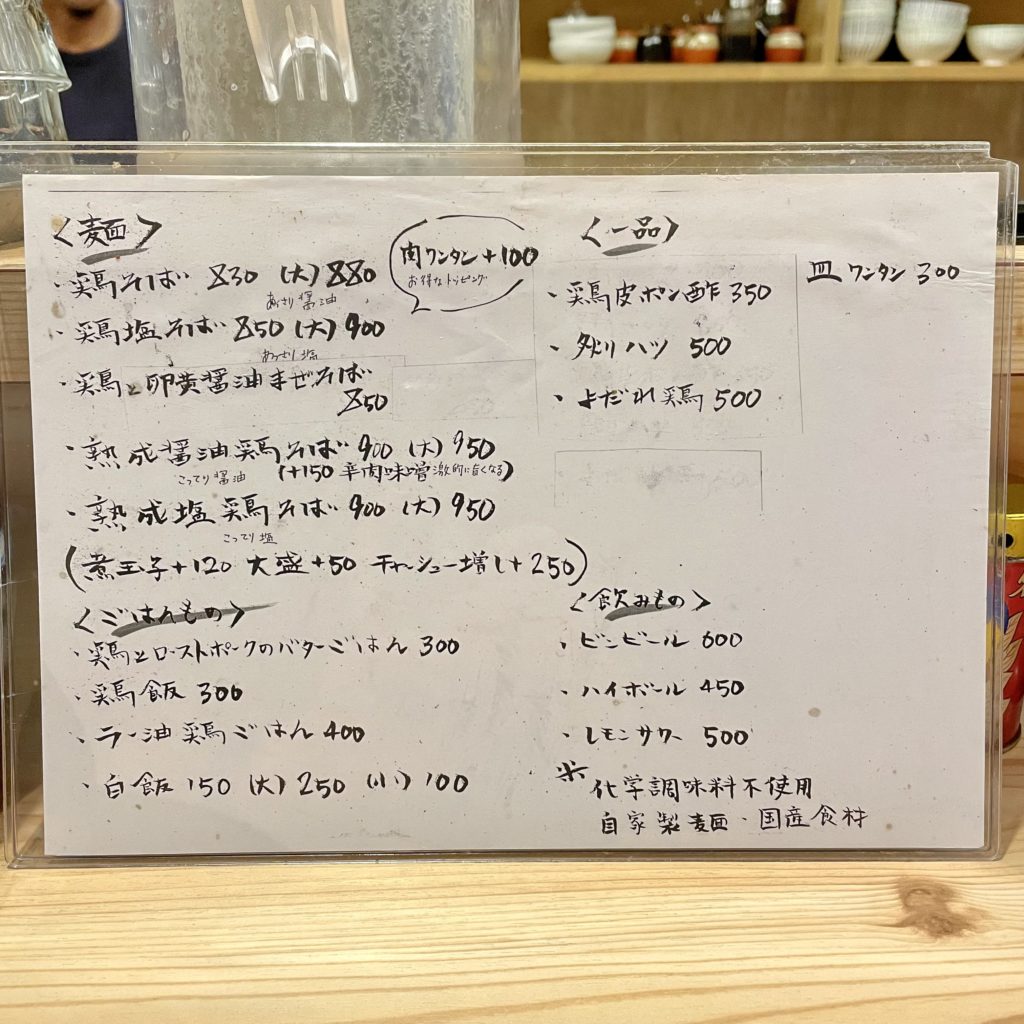 〈麺〉
・鶏そば 830 (大)880
あっさり醤油
・鶏塩そば 850 (大)900
あっさり塩
・鶏と卵黄醤油まぜそば
850
・熟成醤油鶏そば 900 (大)950
こってり醤油 (+150 辛肉味噌 激的に旨くなる)
・熟成塩鶏そば 900 (大)950
こってり塩
(煮玉子+120 大盛+50 チャーシュー増し+250)
肉ワンタン+100
お得なトッピング
〈ごはんもの〉
・鶏とローストポークのバターごはん 300
・鶏飯 300
・ラー油鶏ごはん 400
・白飯 150 (大)250 (小)100
〈一品〉
・鶏皮ポン酢 350
・炙りハツ 500
・よだれ鶏 500
皿ワンタン 300
〈飲みもの〉
・ビンビール 600
・ハイボール 450
・レモンサワー 500
※化学調味料不使用
自家製麺・国産食材